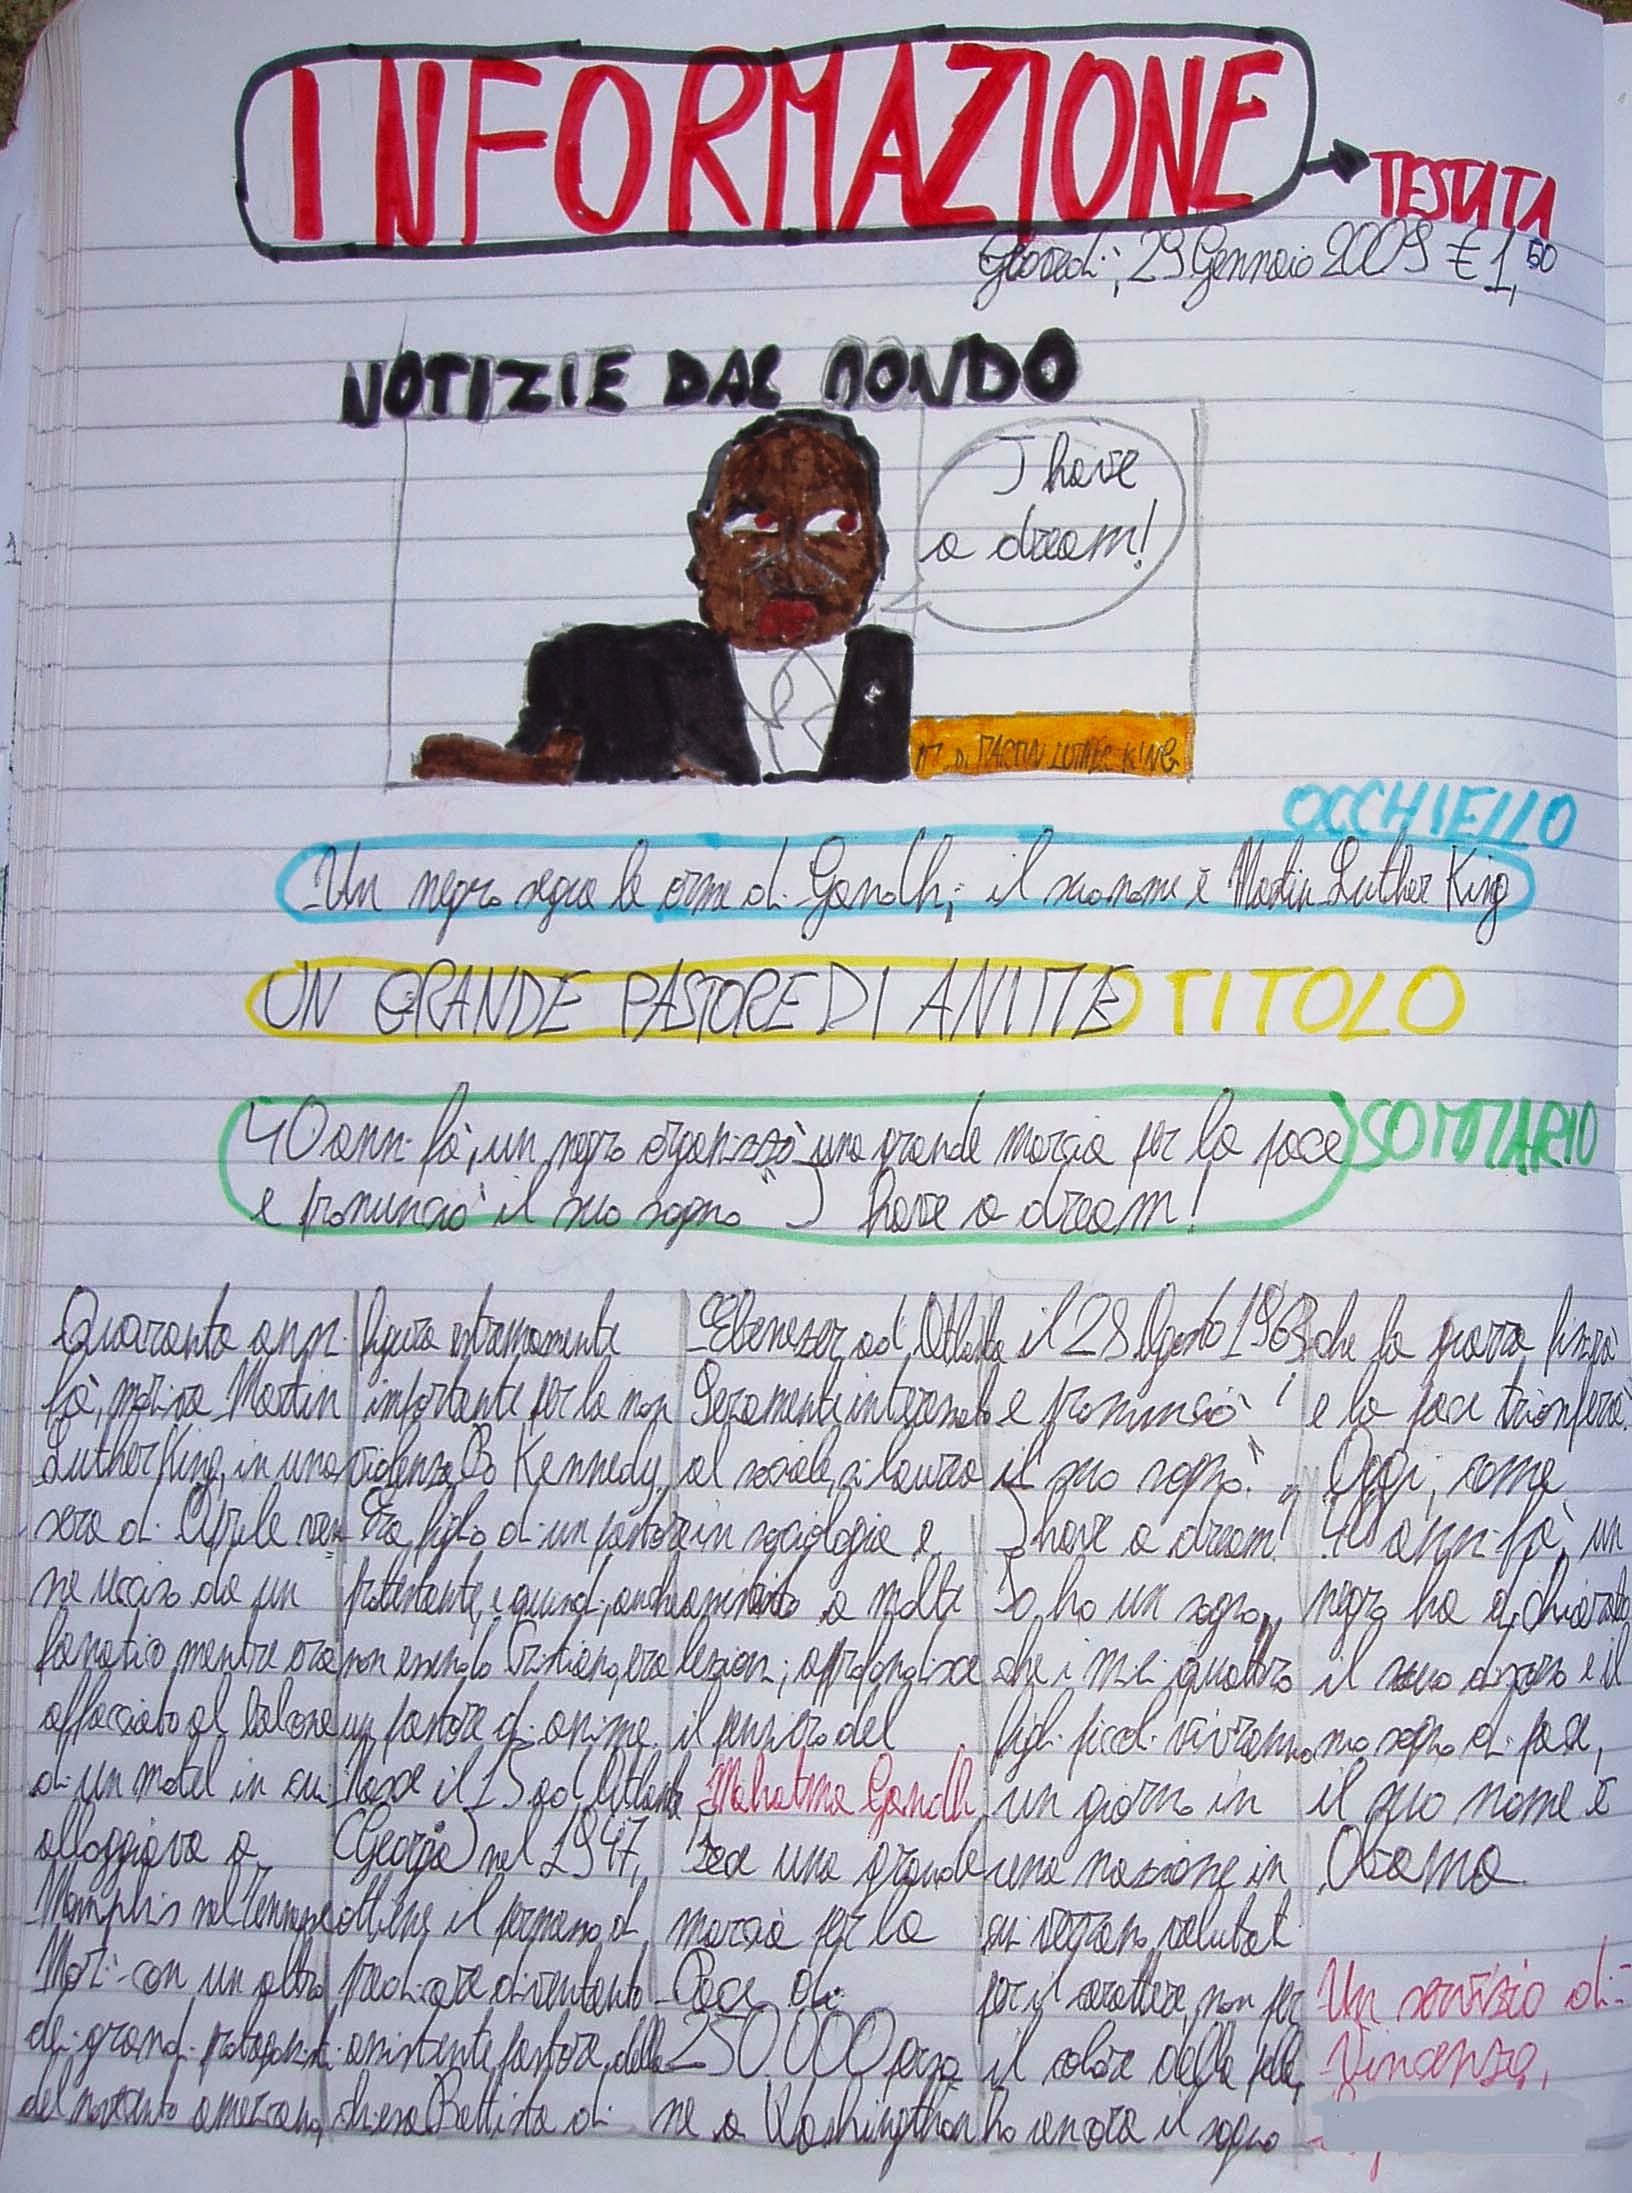 INFORMAZIONE
TESTATA
Giovedì, 29 Gennaio 2009 € 1,50
NOTIZIE DAL MONDO
I have
a dream!
DI MARTIN LUTHER KING
OCCHIELLO
Un negro segue le orme di Gandhi; il suo nome è Martin Luther King
UN GRANDE PASTORE DI ANIME TITOLO
40 anni fà, un negro organizzò una grande marcia per la pace SOMMARIO
e pronunciò il suo sogno " I have a dream!
Quaranta anni
fà, moriva Martin
Luther King, in una
sera di Aprile ven-
ne ucciso da un
fanatico mentre era
affacciato al balcone
di un motel in cui
alloggiava a
Memphis nel
Morì con un altro
dei grandi protagonisti
del novecento americano,
figura estremamente
importante per la non
violenza Bo Kennedy,
Era figlio di un pastore
protestante, e quindi, anche
non essendo Cristiano, era
un pastore di anime.
Nasce il 15 ad Atlanta
(Georgia) nel 1947,
ottiene il permesso di
predicare diventanto
assistente pastore della
chiesa Battista di
Ebenezer ad Atlanta
Seramente interessato
al sociale, si laurea
in sociologia e
a molte
lezioni; approfondisce
il pensiero del
Mahatma Gandhi
Fece una grande
marcia per la
Pace di
250.000 perso
ne a Washingthon
il 28 Agosto 1963
e pronunciò
il suo sogno:"
I have a dream! "
Io ho un sogno,
che i miei quattro
figli piccoli vivranno
un giorno in
una nazione in
cui verrano valutati
per il carattere, non per
il colore della pelle,
ho ancora il sogno
che la guerra finirà
e la pace trionferà.
Oggi, come
40 anni fà, un
negro ha dichiarato
il suo discorso e il
suo sogno di pace,
il suo nome è
Obama.
Un servizio di:
Vincenzo,